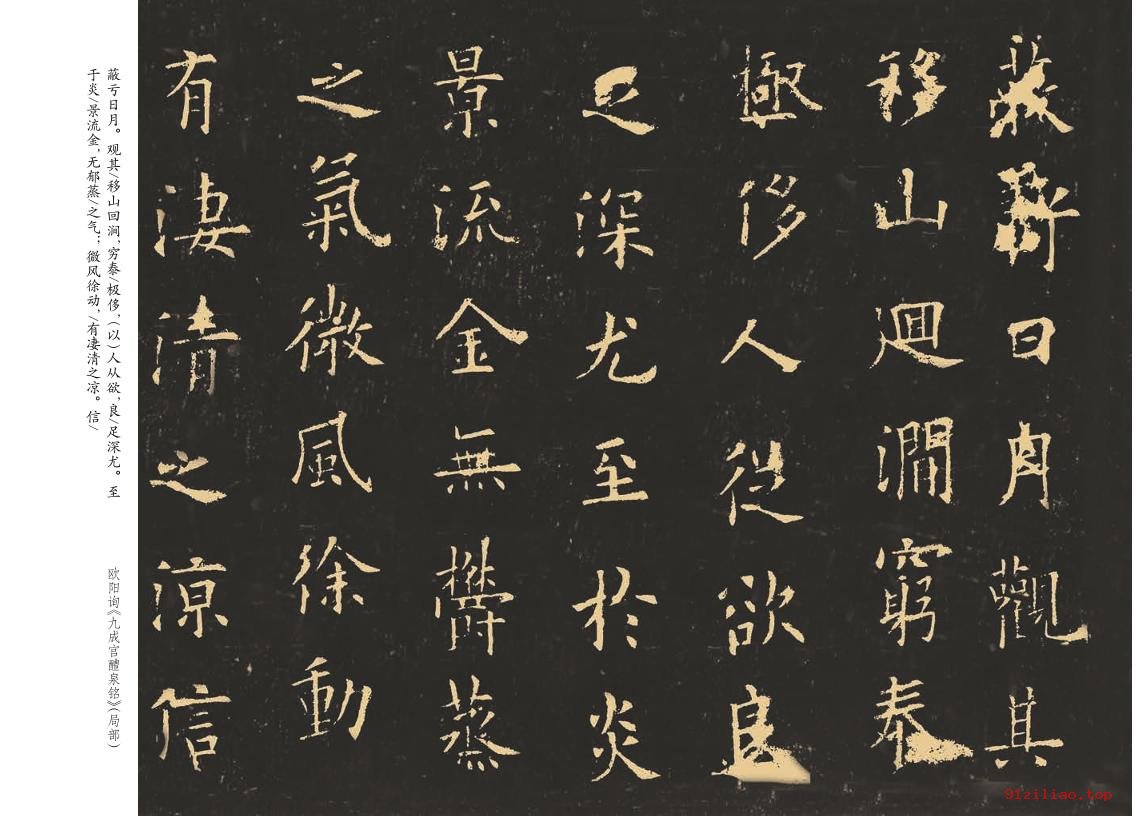 蔽虧日月觀其
移山迴澗窮泰
極侈人從欲良
足深尤至於炎
景流金無鬱蒸
之氣微風徐動
有淒清之涼信
蔽亏日月。观其/移山回涧,穷泰/极侈,(以)人从欲,良/足深尤。至
于炎/景流金,无郁蒸/之气;微风徐动,/有凄清之凉。信/
欧阳询《九成宫醴泉铭》(局部)
91ziliao.top